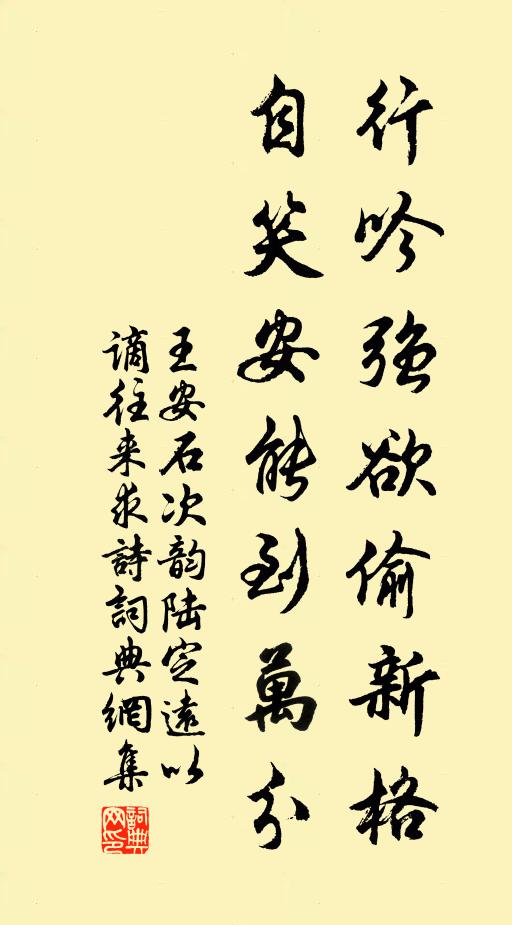 行吟強欲偷新格
自笑安能到萬分
王安石次韵陆定遠以
谪往来求詩詞典網集
詞典网印